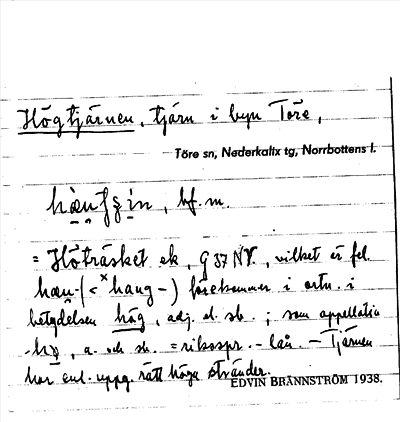 Högtjärnen, tjärn i byn Töre,
Töre sn, Nederkalix tg, Norrbottens l.
bf. m.
= Höträsket ek, G 37 NV., vilket är fel.
(< ˣhaug-) förekommer i ortn. i
betydelsen hög, adj. el. sb.; som appellativ
, a. och sb. = riksspr.-lån. – Tjärnen
har enl. uppg. rätt höga stränder.
EDVIN BRÄNNSTRÖM 1938.